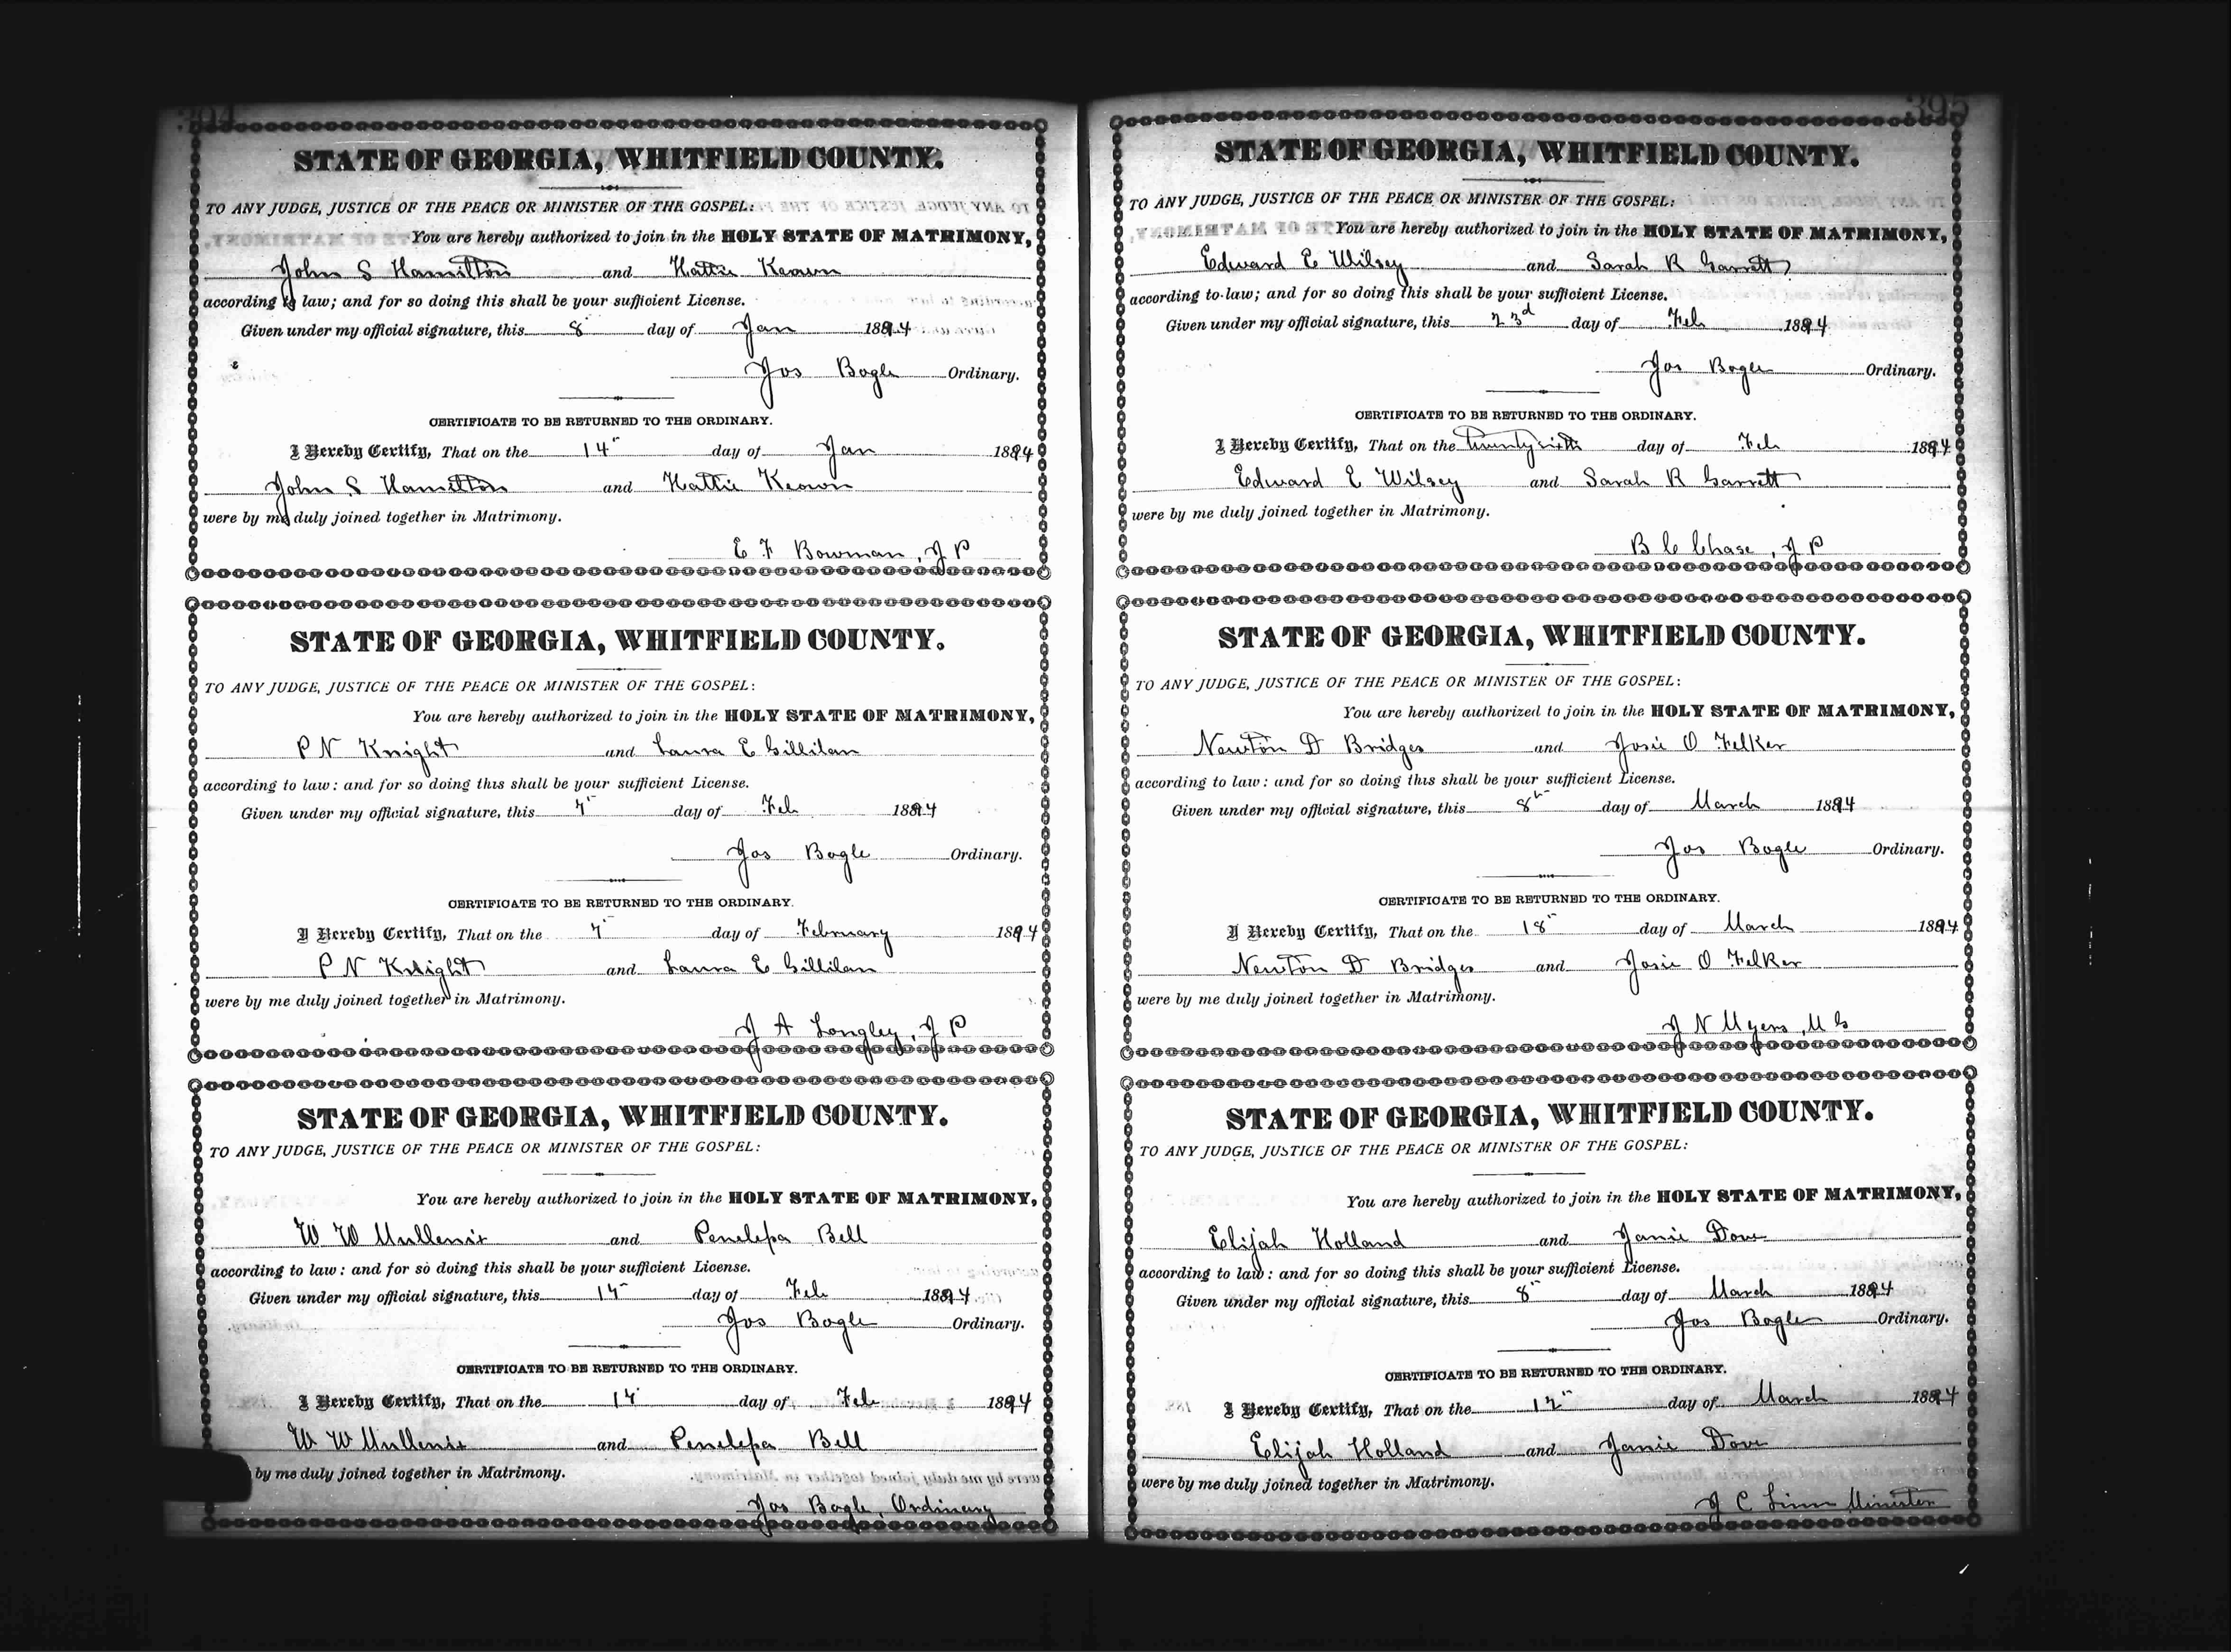 394
STATE OF GEORGIA, WHITFIELD COUNTY.
TO ANY JUDGE, JUSTICE OF THE PEACE OR MINISTER OF THE GOSPEL:
You are hereby authorized to join in the HOLY STATE OF MATRIMONY,
John S Hamilton and Hattie Keown
according to law; and for so doing this shall be your sufficient License.
Given under my official signature, this 8 day of Jan 1894
Jos Bogle Ordinary.
CERTIFICATE TO BE RETURNED TO THE ORDINARY.
I Hereby Certify, That on the 14" day of Jan 1894
John S Hamilton and Hattie Keown
were by me duly joined together in Matrimony.
E F Bowman, J P
STATE OF GEORGIA, WHITFIELD COUNTY.
TO ANY JUDGE, JUSTICE OF THE PEACE OR MINISTER OF THE GOSPEL:
You are hereby authorized to join in the HOLY STATE OF MATRIMONY,
P N Knight and Laura E Gillilan
according to law: and for so doing this shall be your sufficient License.
Given under my official signature, this 7" day of Feb 1894
Jos Bogle Ordinary.
CERTIFICATE TO BE RETURNED TO THE ORDINARY.
I Hereby Certify, That on the 7" day of February 1894
P N Knight and Laura E Gillilan
were by me duly joined together in Matrimony.
J A Longley, J P
STATE OF GEORGIA, WHITFIELD COUNTY.
TO ANY JUDGE, JUSTICE OF THE PEACE OR MINISTER OF THE GOSPEL:
You are hereby authorized to join in the HOLY STATE OF MATRIMONY,
W W Mullenix and Penelepa Bell
according to law: and for so doing this shall be your sufficient License.
Given under my official signature, this day of Feb 1894
Jos Bogle Ordinary.
CERTIFICATE TO BE RETURNED TO THE ORDINARY.
I Hereby Certify, That on the day of Feb 1894
W W Mullenix and Penelepa Bell
by me duly joined together in Matrimony.
Jos Bogle, Ordinary
395
STATE OF GEORGIA, WHITFIELD COUNTY.
TO ANY JUDGE, JUSTICE OF THE PEACE OR MINISTER OF THE GOSPEL:
You are hereby authorized to join in the HOLY STATE OF MATRIMONY,
Edward E Wilsey and Sarah R Garrett
according to law; and for so doing this shall be your sufficient License.
Given under my official signature, this 23d day of Feb 1894
Jos Bogle Ordinary.
CERTIFICATE TO BE RETURNED TO THE ORDINARY.
I Hereby Certify, That on the twenty sixth day of Feb 1894
Edward E Wilsey and Sarah R Garrett
were by me duly joined together in Matrimony.
B C Chase, J P
STATE OF GEORGIA, WHITFIELD COUNTY.
TO ANY JUDGE, JUSTICE OF THE PEACE OR MINISTER OF THE GOSPEL:
You are hereby authorized to join in the HOLY STATE OF MATRIMONY,
Newton D Bridges and Josie O Felker
according to law: and for so doing this shall be your sufficient License.
Given under my official signature, this 8" day of March 1894
Jos Bogle Ordinary.
CERTIFICATE TO BE RETURNED TO THE ORDINARY.
I Hereby Certify, That on the 18" day of March 1894
Newton D Bridges and Josie O Felker
were by me duly joined together in Matrimony.
J N Myers, M G
STATE OF GEORGIA, WHITFIELD COUNTY.
TO ANY JUDGE, JUSTICE OF THE PEACE OR MINISTER OF THE GOSPEL:
You are hereby authorized to join in the HOLY STATE OF MATRIMONY,
Elijah Holland and Janie Dove
according to law: and for so doing this shall be your sufficient License.
Given under my official signature, this 8" day of March 1894
Jos Bogle Ordinary.
CERTIFICATE TO BE RETURNED TO THE ORDINARY.
I Hereby Certify, That on the 12" day of March 1894
Elijah Holland and Janie Dove
were by me duly joined together in Matrimony.
J C Linn Minister